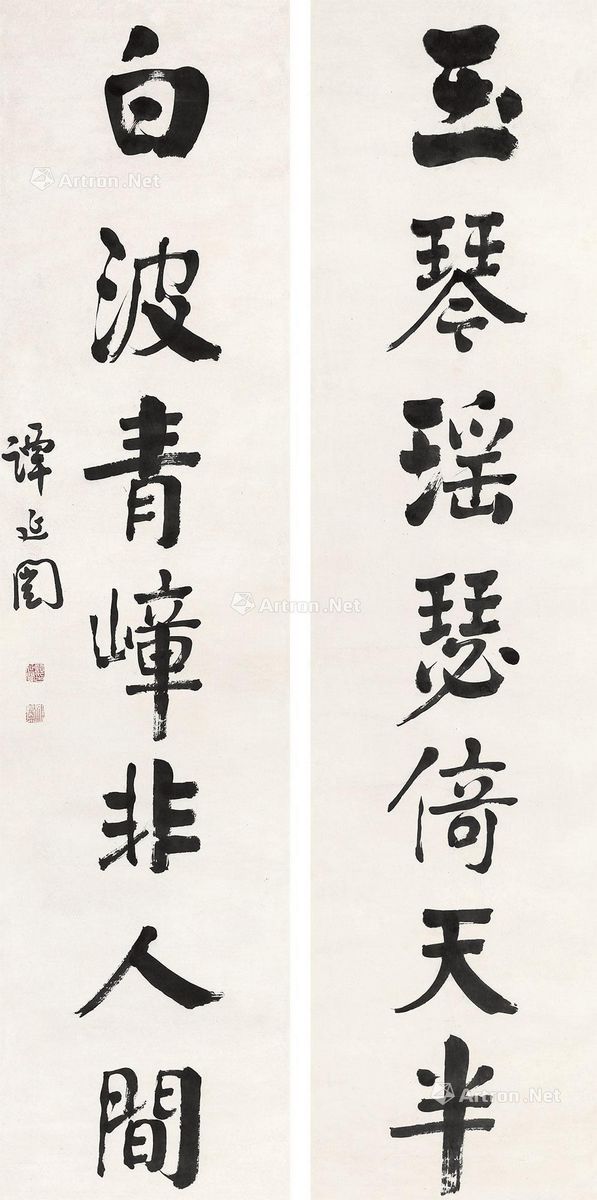 玉琴瑶瑟倚天半
白波青嶂非人間
譚延闓
Artron.Net
Artron.Net
Artron.Net